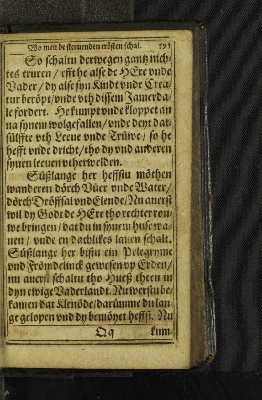 Wo men de steruenden trösten schal. 193
So schaltu derwegen gantz nich-
tes truren / efft he alse de HEre vnde
Vader / dy alse syn Kindt vnde Crea-
tur beröpt / vnde vth dissem Jamerda-
le fordert. He kumpt vnde kloppet an
na synem wolgefallen / vnde deyt dat-
sülffte vth Leeue vnde Trüwe / so he
hefft vnde dricht / tho dy vnd anderen
synen leeuen vtherwelden.
Süßlange her heffstu möthen
wanderen dörch Vüer vnde Water /
dörch Dröffsal vnd Elende / Nu auerst
wil dy Godt de HEre tho rechter rou-
we bringen / dat du in synem huse wa-
nen / vnde en dachlikes lauen schalt.
Süßlange her bistu ein Pelegryme
vnd Frömdelinck gewesen vp Erden /
nu auerst schaltu tho Hueß theen in
dyn ewige Vaderlandt. Nu werstu be-
kamen dat Klenöde / darümme du lan-
ge gelopen vnd dy bemöyet heffst. Nu
Qq kum-